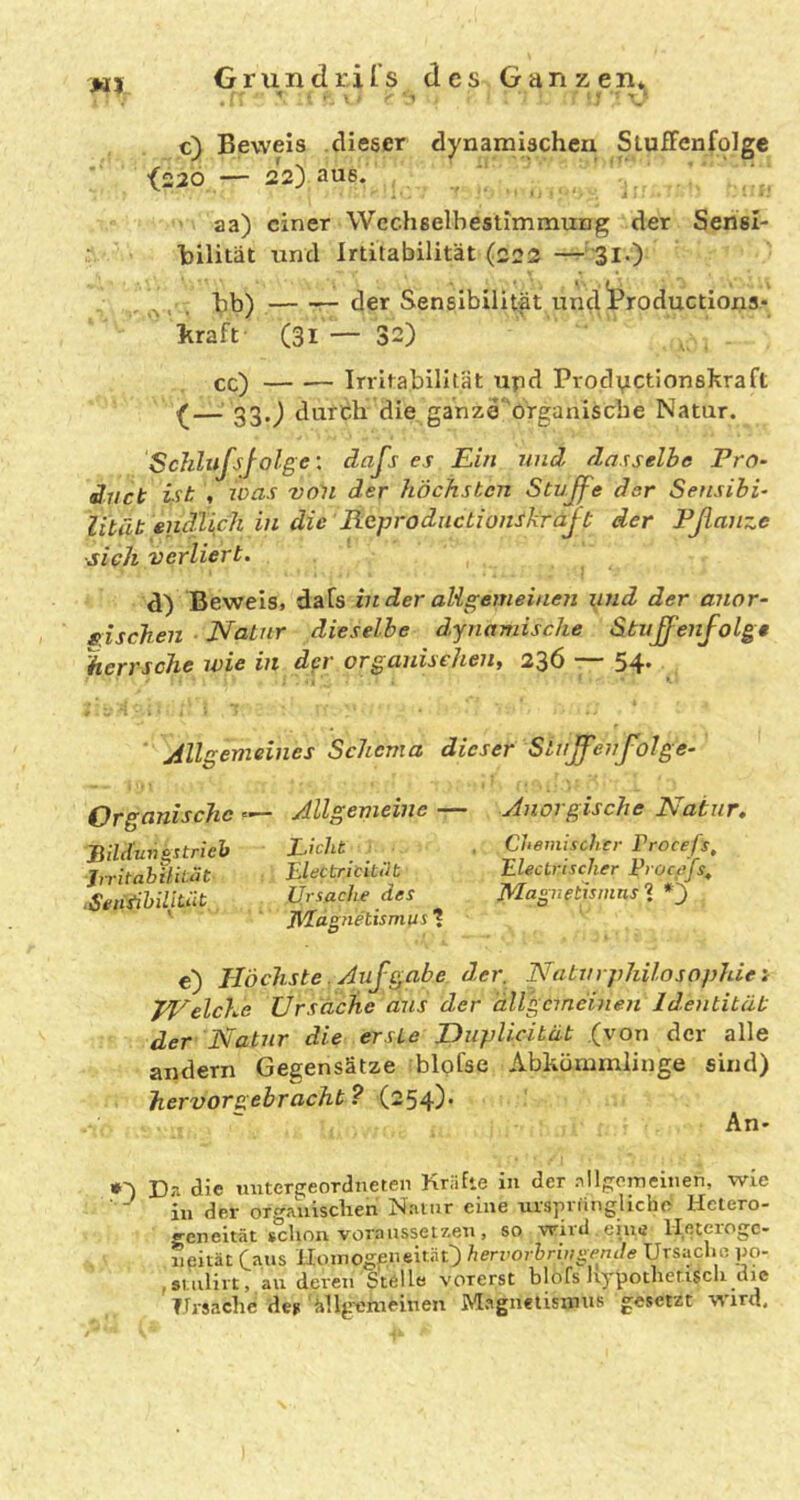 XII Grundriſs des Ganzen.
c) Beweis dieser dynamischen Stuffenfolge
(220 — 22) aus.
aa) einer Wechselbestimmung der Sensi-
bilität und Irtitabilität (222 — 31.)
bb) — — der Sensibilität und Productions-
kraft (31 — 32)
cc) — — Irritabilität und Productionskraft
(— 33.) durch die ganze organische Natur.
Schluſsfolge: daſs es Ein und dasselbe Pro-
duct ist, was von der höchsten Stuffe der Sensibi-
lität endlich in die Reproductionskraft der Pflanze
sich verliert.
d) Beweis, daſs in der allgemeinen und der anor-
gischen Natur dieselbe dynamische Stuffenfolge
herrsche wie in der organischen, 236 — 54.
Allgemeines Schema dieser Stuffenfolge.
Organische — Allgemeine — Anorgische Natur.
Bildungstrieb Licht Chemischer Proceſs,
Irritabilität Electricität Electrischer Proceſs,
Sensibilität Ursache des Magnetismus? *)
Magnetismus?
e) Höchste Aufgabe der Naturphilosophie:
Welche Ursache aus der allgemeinen Identität
der Natur die erste Duplicität (von der alle
andern Gegensätze bloſse Abkömmlinge sind)
hervorgebracht? (254).
An-
*) Da die untergeordneten Kräfte in der allgemeinen, wie
in der organischen Natur eine ursprüngliche Hetero-
geneität schon voraussetzen, so wird eine Heteroge-
neität (aus Homogeneität) hervorbringende Ursache po-
stulirt, an deren Stelle vorerst bloſs hypothetisch die
Ursache des allgemeinen Magnetismus gesetzt wird.